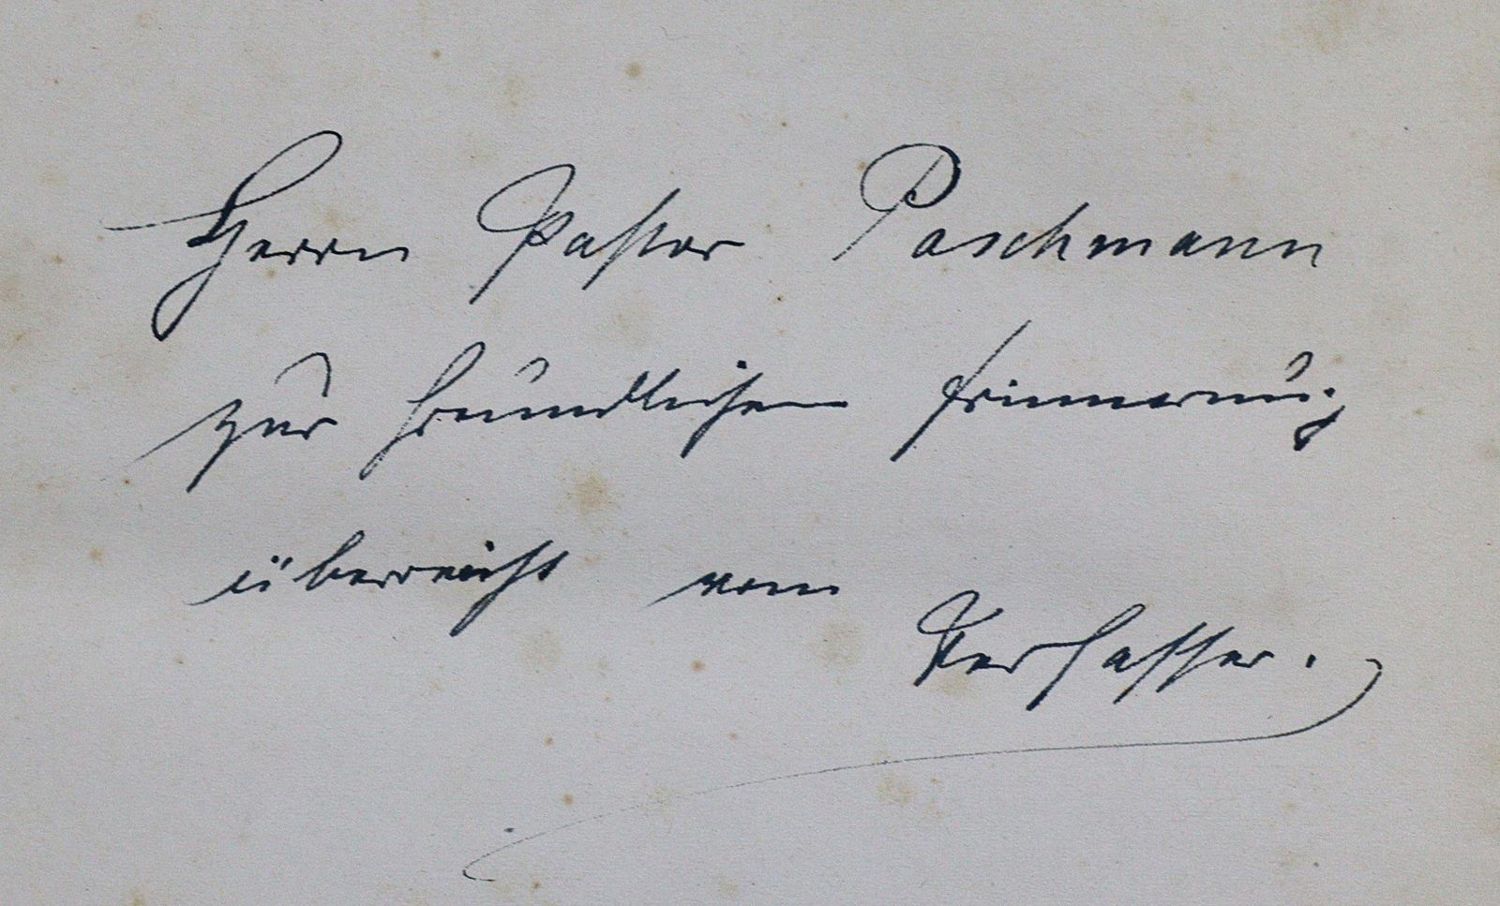 Herrn Pastor Paschmann
zur freundlichen Erinnerung
überreicht vom
Verfasser.